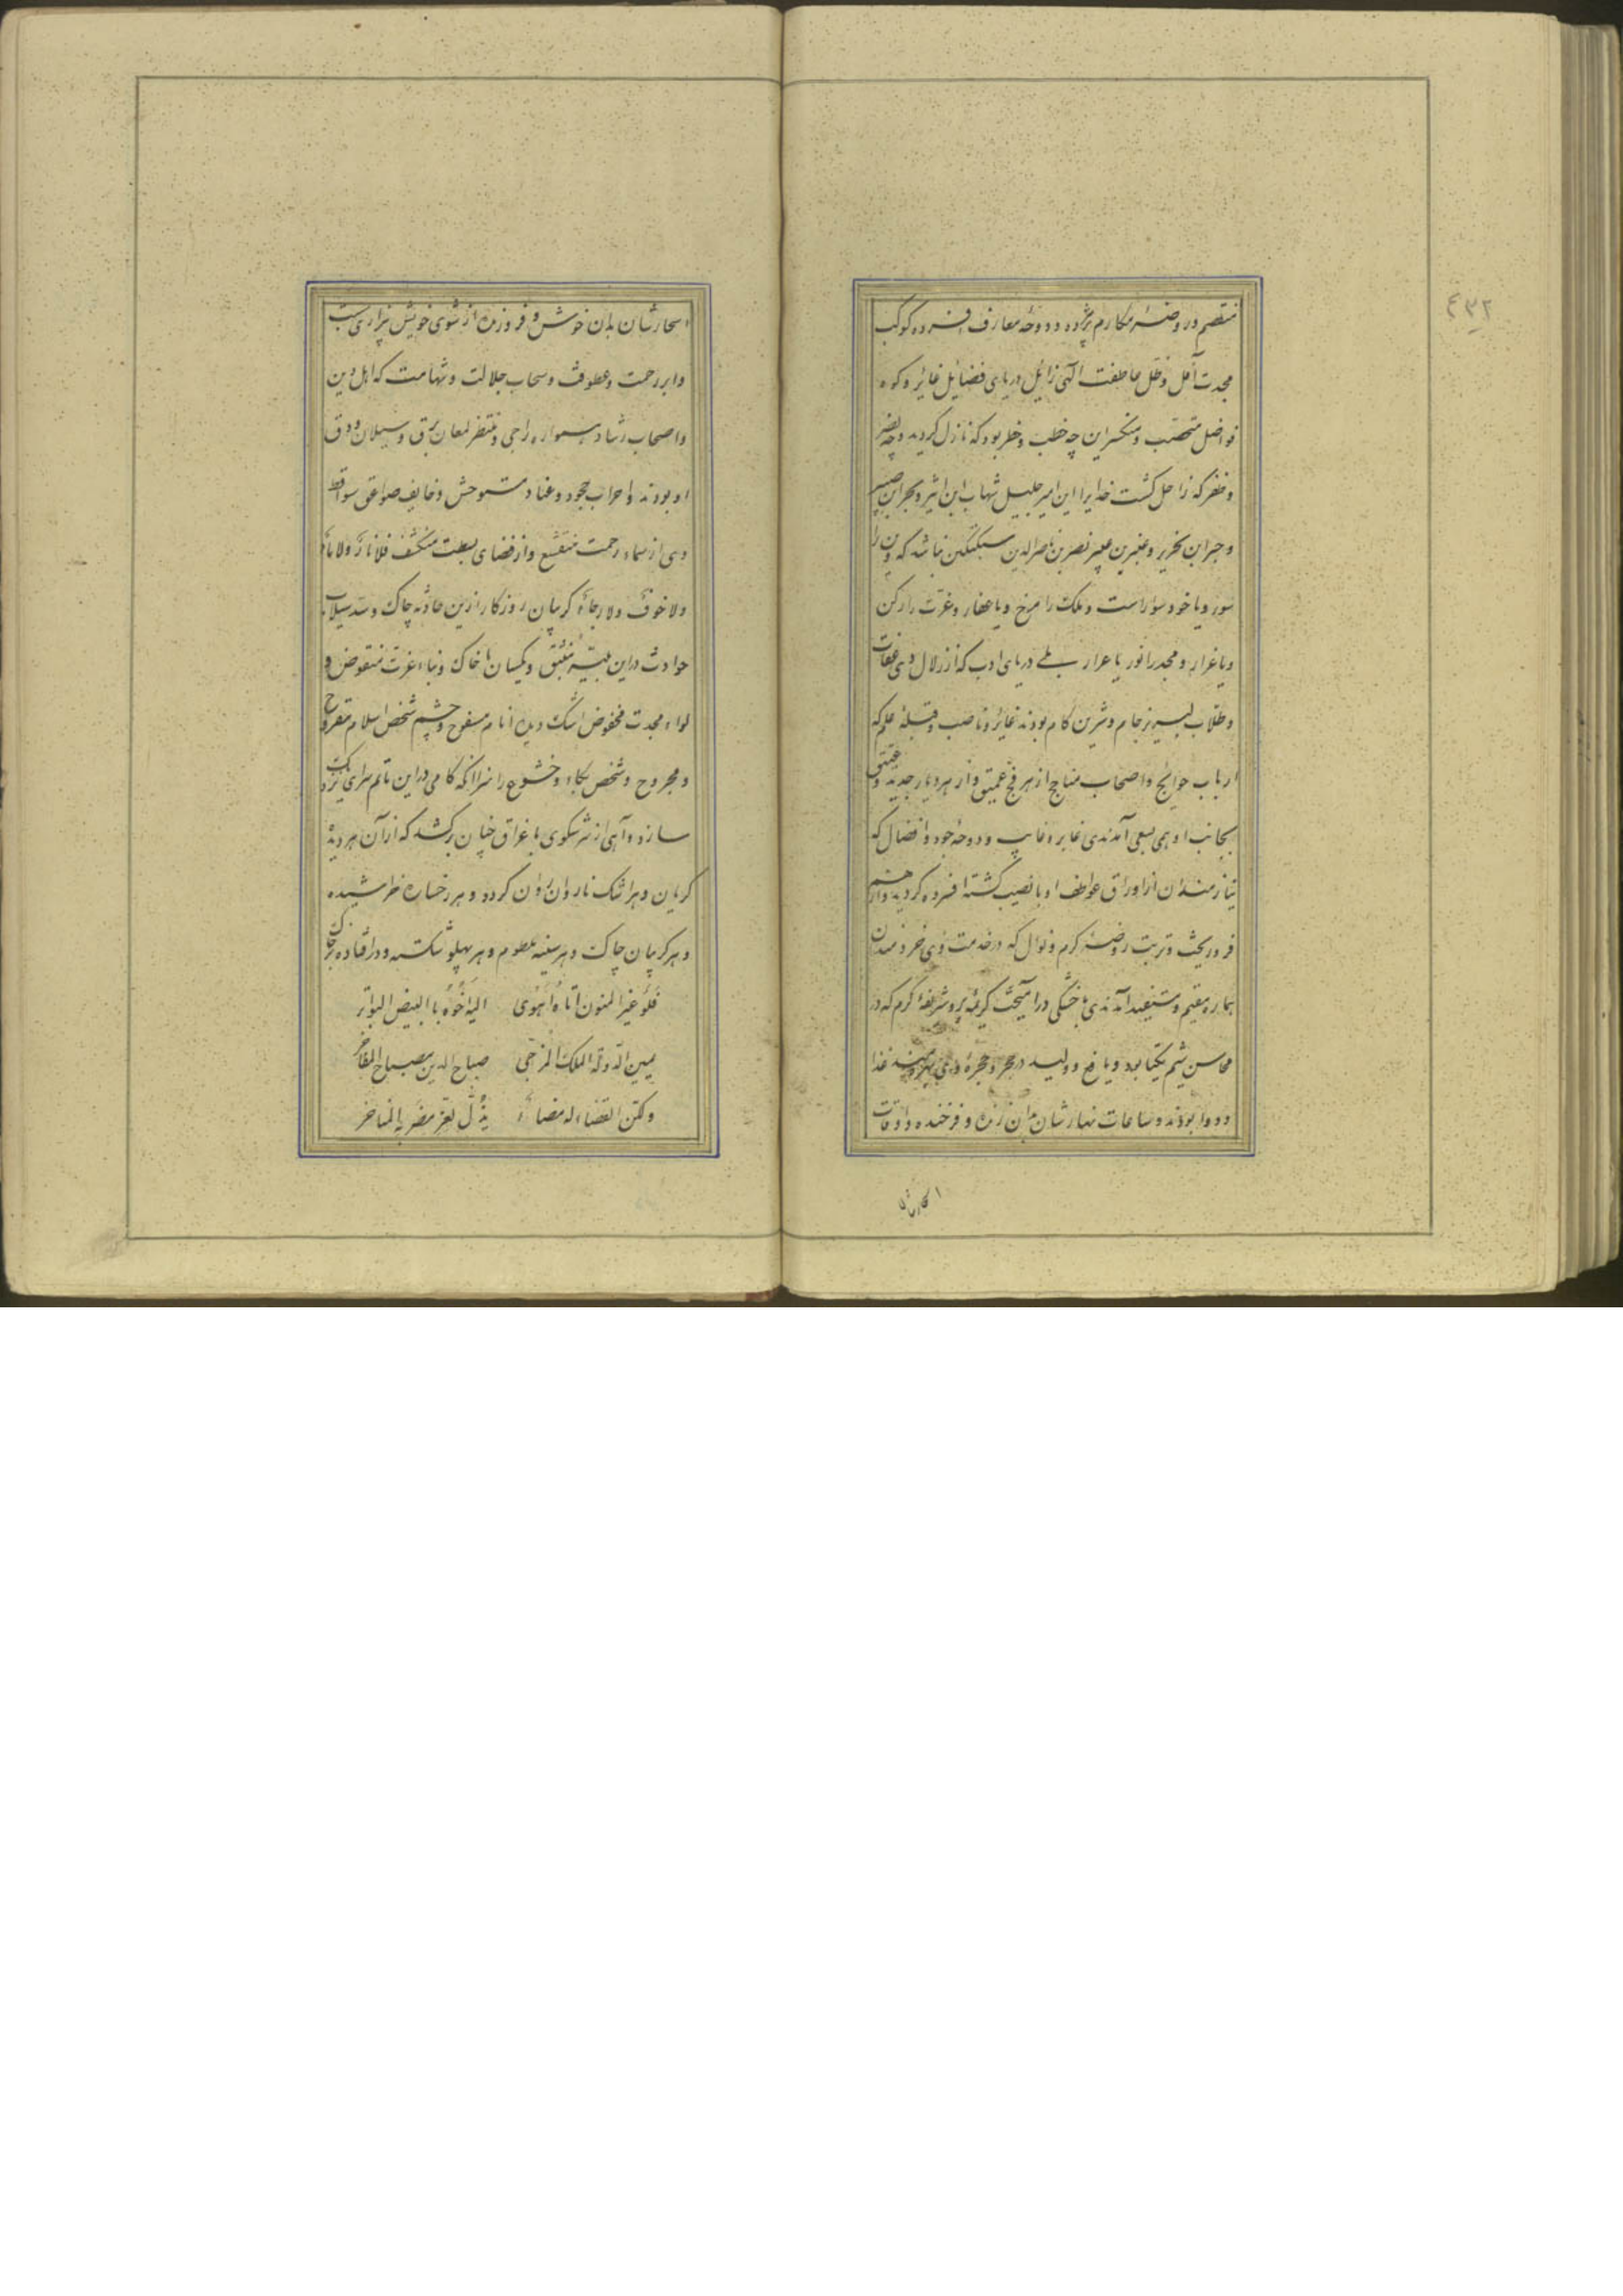 ۴۳۲
منقصم و روضهٔ مکارم پژمرده و دوحهٔ معارف افسرده و کوکب
مجدت آفل و ظل عاطفت الهی زائل دریای فضایل غایر و کوه
فواضل منقصب و منکسر این چه خطب و خطر بود که نازل گردید و چه
و ظفر که راحل گشت خدایرا این امیر جلیل شهاب ابن اثیر و بحر ابن
و حبر ابن نحریر و عنبرین عبیر نصر بن ناصرالدین سبکتکین نباشد که دین را
سور و یا خود سوار است و ملک را مرخ و یا عفار و عزت را رکن
و یا غرار و مجد را نور یا عرار بلی دریای ادب که از زلال وی
و طلاب لبریز جام و شیرین کام بودند غایر و ناصب و قبلهٔ علم که
ارباب حوایج و اصحاب مناجح از هر فج عمیق و از هر دیار جدید و عتیقی
بجانب او همی بسعی آمدندی غابر و غایب و دوحهٔ جود و افضال که
نیازمندان از اوراق عواطف او با نصیب گشته افسرده گردید و از هم
فرو ریخت و تربت روضهٔ کرم و نوال که در خدمت وی
هماره مقیم و مستفید آمدندی با خشکی در آمیخت کریمهٔ پر و شریفهٔ کرم که در
محاسن شیم یکتا بود و یافع و ولید در حجر و حجرهٔ وی غذا
و دوا بودند و ساعات نهارشان بدان زنده و فرخنده و اوقات
اسحارشان
اسحارشان بدان خوش و فروزنده از شوی خویش بیزاری
و ابر رحمت و عطوفت و سحاب جلالت و شهامت که اهل دین
و اصحاب رشاد همواره راجی و منتظر لمعان برق و سیلان ودق
او بودند و احزاب جحود و عناد مستوحش و خایف صواعق سواقط
وی از سماء رحمت منقشع و از فضای بسطت منکشف فلا نار ولا ماء
ولا خوف ولا رجاء گریبان روزگار ازین حادثه چاک و سد سیلاب
حوادث در این بلیه منبثق و یکسان با خاک و بناء عزت منقوض و
لواء مجدت مخفوض اشک دیده انام مسفوح و چشم شخص اسلام مقروح
و مجروح و شخص بکاء و خشوع را سزا آنکه گامی در این ماتم سرای
سازد و آهی از سر سکوی با غراق چنان برکشد که از آن هر دیدهٔ
گریان و هر اشک نار وان روان گردد و هر رخساره خراشیده
و هر گریبان چاک و هر سینه ملطوم و هر پهلو شکسته و در افتاده
فلو غیر المنون اتاه اهوی الیه اخوه بالبیض البواتر
یمین الدولة الملک المرجی صباح الدین مصباح المفاخر
ولکن القضاء له مضاء یذل لعز مضربه المناخر